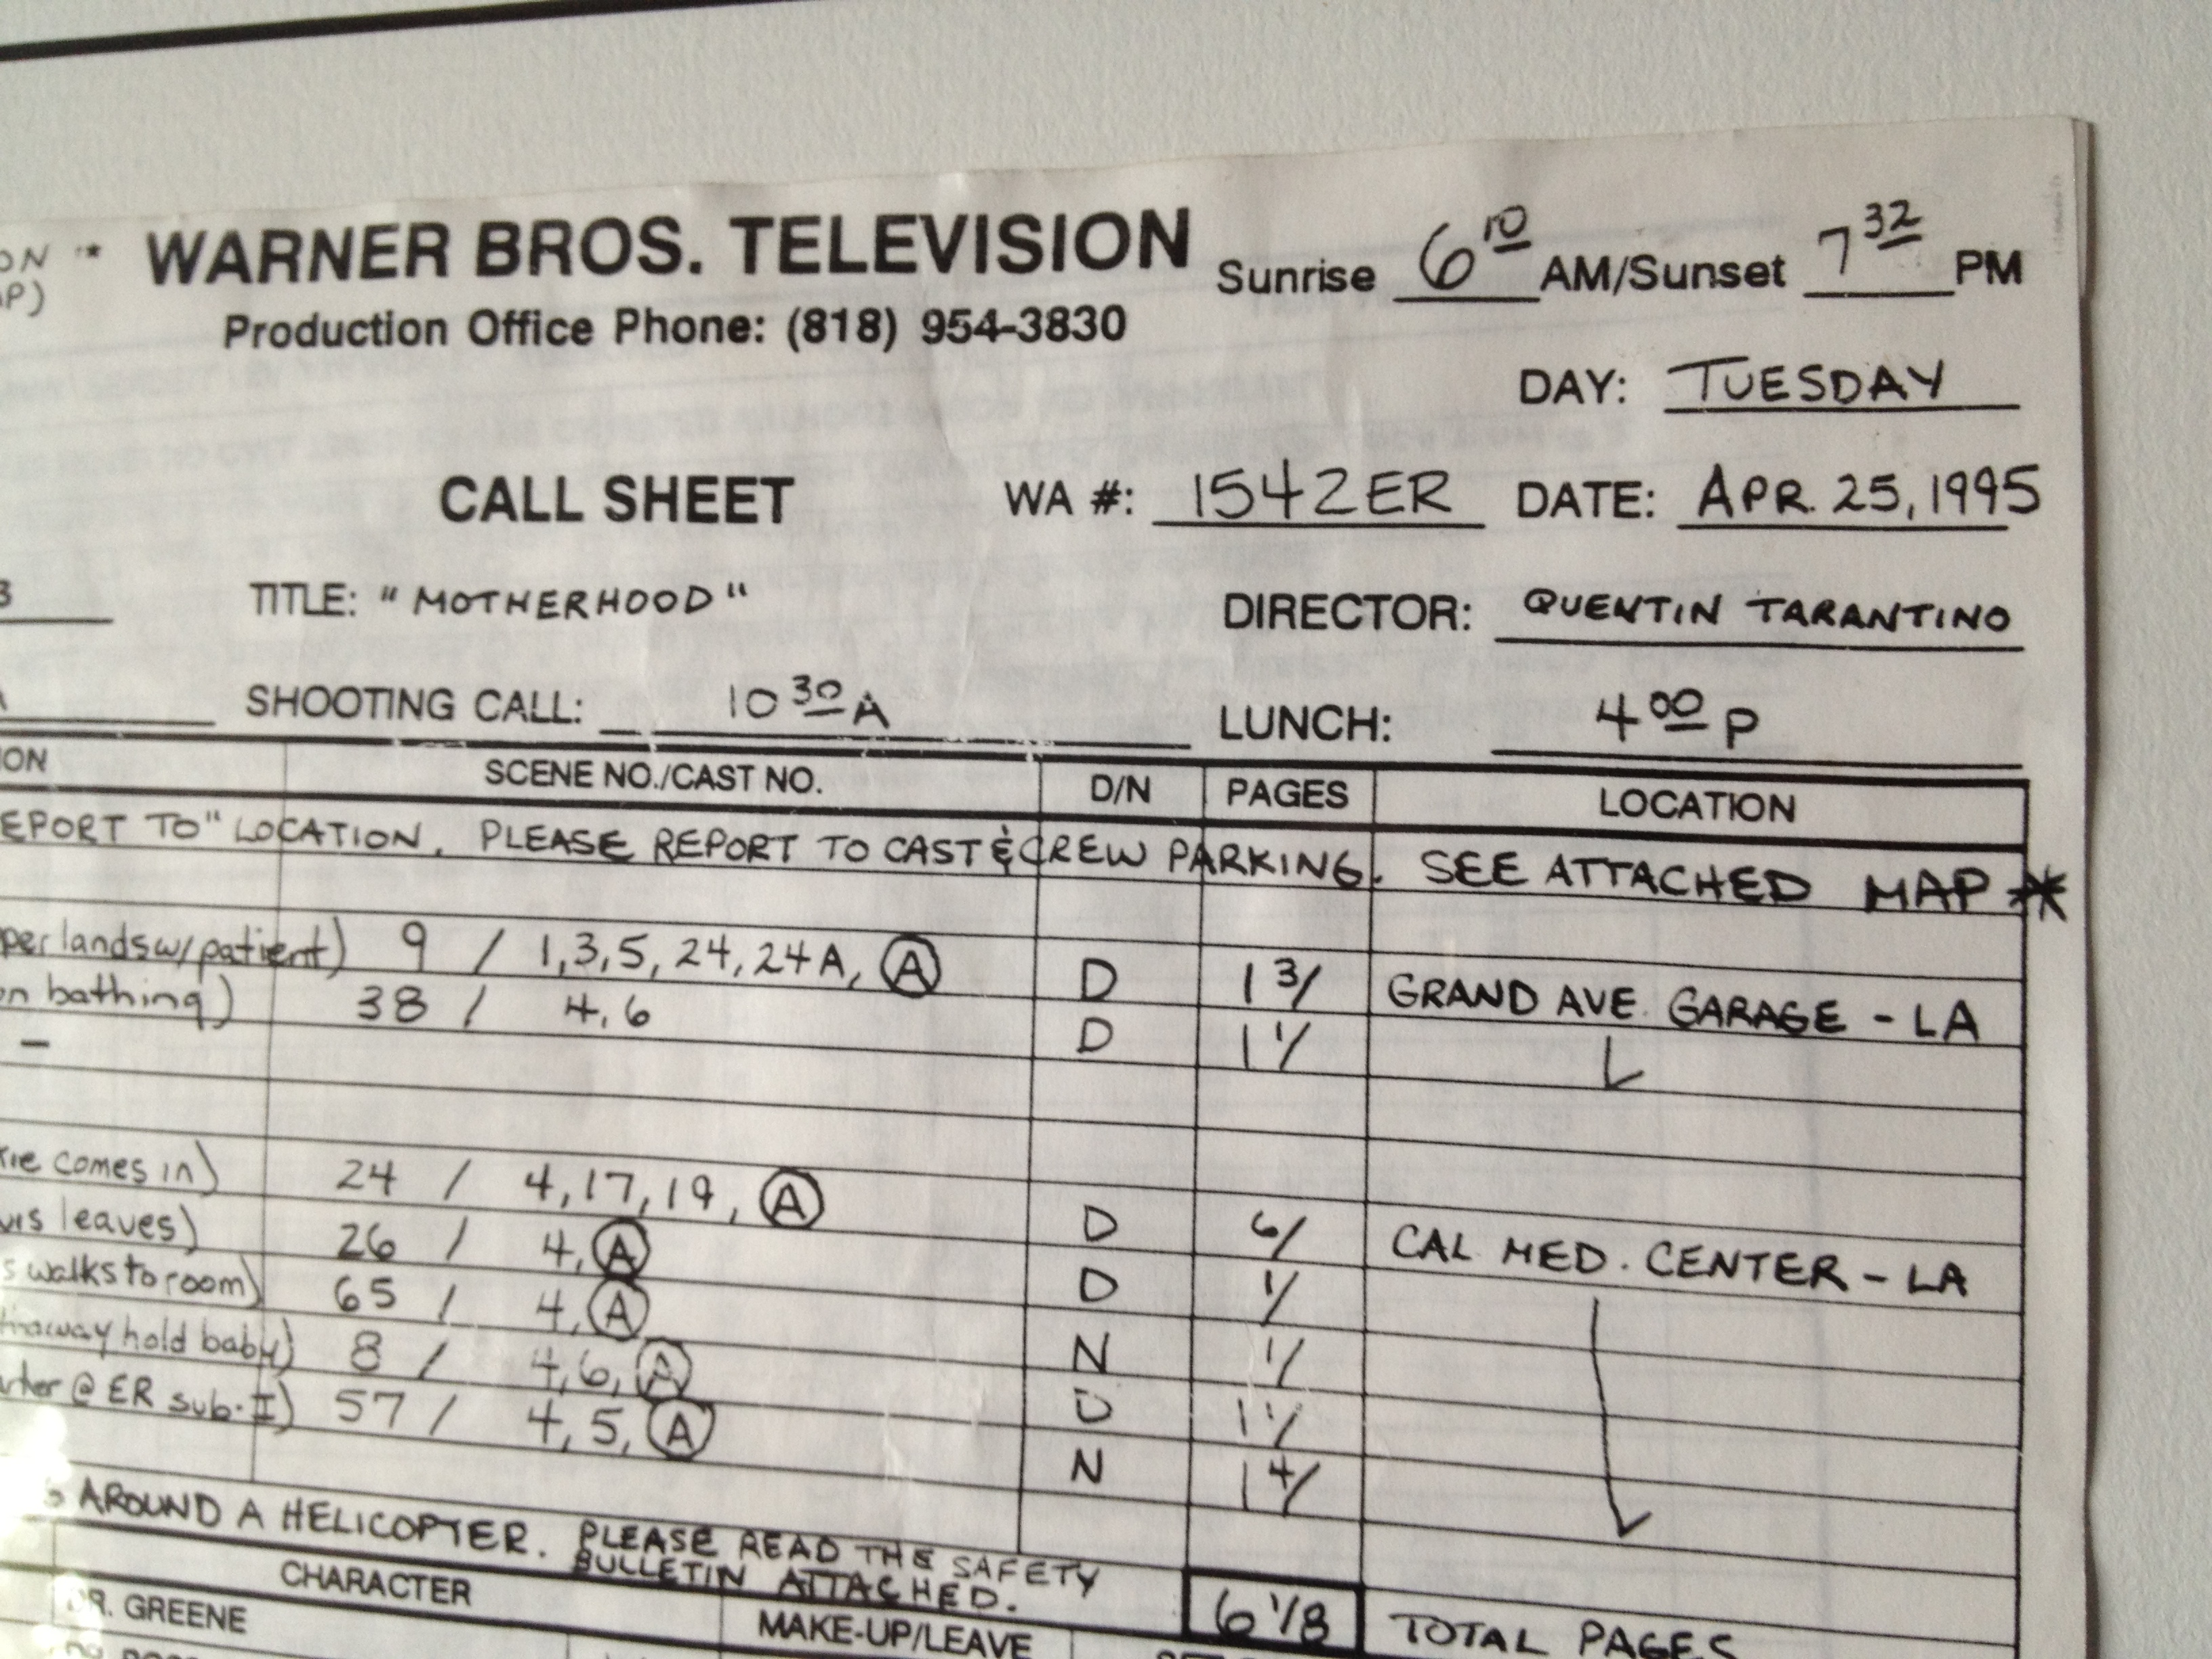 ON * WARNER BROS. TELEVISION Sunrise 6 10 AM/Sunset 7 32 PM
Production Office Phone: (818) 954-3830
DAY: TUESDAY
CALL SHEET WA #: 1542ER DATE: APR. 25, 1995
TITLE: "MOTHERHOOD" DIRECTOR: QUENTIN TARANTINO
SHOOTING CALL: 10 30 A LUNCH: 4 00 P
ON SCENE NO./CAST NO. D/N PAGES LOCATION
EPORT TO" LOCATION. PLEASE REPORT TO CAST & CREW PARKING. SEE ATTACHED MAP *
per lands w/patient) 9 / 1, 3, 5, 24, 24A, A D 1 3/ GRAND AVE. GARAGE - LA
on bathing) 38 / 4, 6 D 1 1/
-
comes in) 24 / 4, 17, 19, A D 6/ CAL MED. CENTER - LA
leaves) 26 / 4, A D 1/
s walks to room) 65 / 4, A N 1/
haway hold baby) 8 / 4, 6, A D 1 1/
rter @ ER sub-I) 57 / 4, 5, A N 1 4/
AROUND A HELICOPTER. PLEASE READ THE SAFETY
BULLETIN ATTACHED.
6 1/8 TOTAL PAGES
CHARACTER MAKE-UP/LEAVE
DR. GREENE